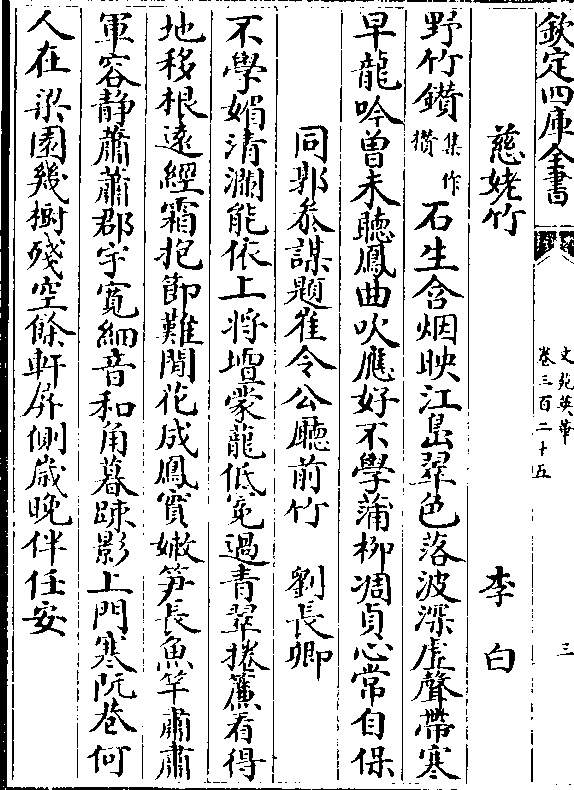 欽定四庫全書
文苑英華
卷三百二十五
三
慈姥竹 李白
野竹鑚集作攅石生含烟映江島翠色落波深虚聲帶寒
早龍吟曽未聴鳳曲吹應好不學蒲柳凋貞心常自保
同郭叅謀題崔令公廳前竹 劉長卿
不學媚清瀾能依上將壇蒙龍低冕過青翠捲簾看得
地移根逺經霜抱節難開花成鳳實嫩笋長魚竿肅肅
軍容静蕭蕭郡宇寛細音和角暮疎影上門寒阮巷何
人在梁園幾樹殘空餘軒屏側歳晚伴任安